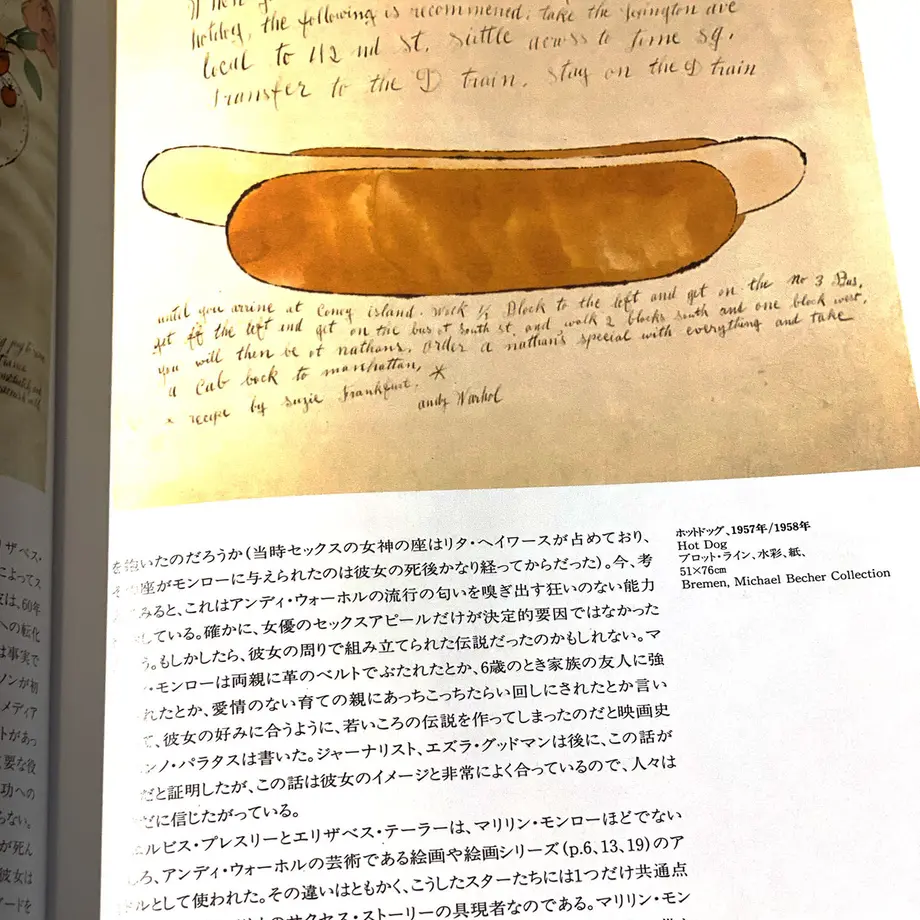 hotdog, the following is recommened: take the lexington ave
local to 42 nd St. Suttle across to time sq.
Transfer to the D train. Stay on the D train
until you arrine at Coney island. walk ½ Block to the left and get on the no 3 Bus,
get off the left and get on the bus at South st. and walk 2 blocks south and one block west.
you will then be at nathans. Order a nathan's special with everything and take
a Cab back to manhattan, *
* recipe by Suzie Frankfurt.
andy Warhol
ホットドッグ、1957年/1958年
Hot Dog
ブロット・ライン、水彩、紙、
51×76cm
Bremen, Michael Becher Collection
を抱いたのだろうか(当時セックスの女神の座はリタ・ヘイワースが占めており、
座がモンローに与えられたのは彼女の死後かなり経ってからだった)。今、考
みると、これはアンディ・ウォーホルの流行の匂いを嗅ぎ出す狂いのない能力
している。確かに、女優のセックスアピールだけが決定的要因ではなかった
う。もしかしたら、彼女の周りで組み立てられた伝説だったのかもしれない。マ
・モンローは両親に革のベルトでぶたれたとか、6歳のとき家族の友人に強
れたとか、愛情のない育ての親にあっちこっちたらい回しにされたとか言い
て、彼女の好みに合うように、若いころの伝説を作ってしまったのだと映画史
ンノ・パラタスは書いた。ジャーナリスト、エズラ・グッドマンは後に、この話が
だと証明したが、この話は彼女のイメージと非常によく合っているので、人々は
だに信じたがっている。
ルビス・プレスリーとエリザベス・テーラーは、マリリン・モンローほどでない
ろ、アンディ・ウォーホルの芸術である絵画や絵画シリーズ(p.6、13、19)のア
ドルとして使われた。その違いはともかく、こうしたスターたちには1つだけ共通点
サクセス・ストーリーの具現者なのである。マリリン・モン